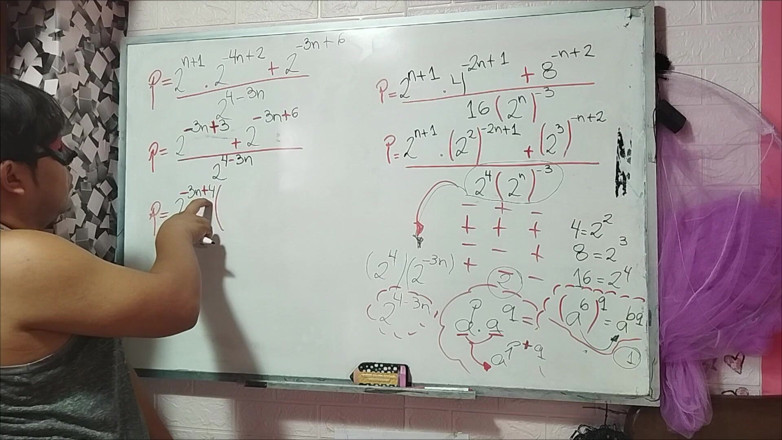 P = 2^{n+1} · 2^{-4n+2} + 2^{-3n+6}
2^{4-3n}
P = 2^{-3n+3} + 2^{-3n+6}
2^{4-3n}
P = 2^{-3n+4} (
P = 2^{n+1} · 4^{-2n+1} + 8^{-n+2}
16 (2^n)^{-3}
P = 2^{n+1} · (2^2)^{-2n+1} + (2^3)^{-n+2}
2^4 (2^n)^{-3}
- + -
+ + +
- - +
+ - -
(2^4)(2^{-3n})
2^{4-3n}
4 = 2^2
8 = 2^3
16 = 2^4
a^p · a^q =
a^{p+q}
(a^b)^q = a^{bq}
1